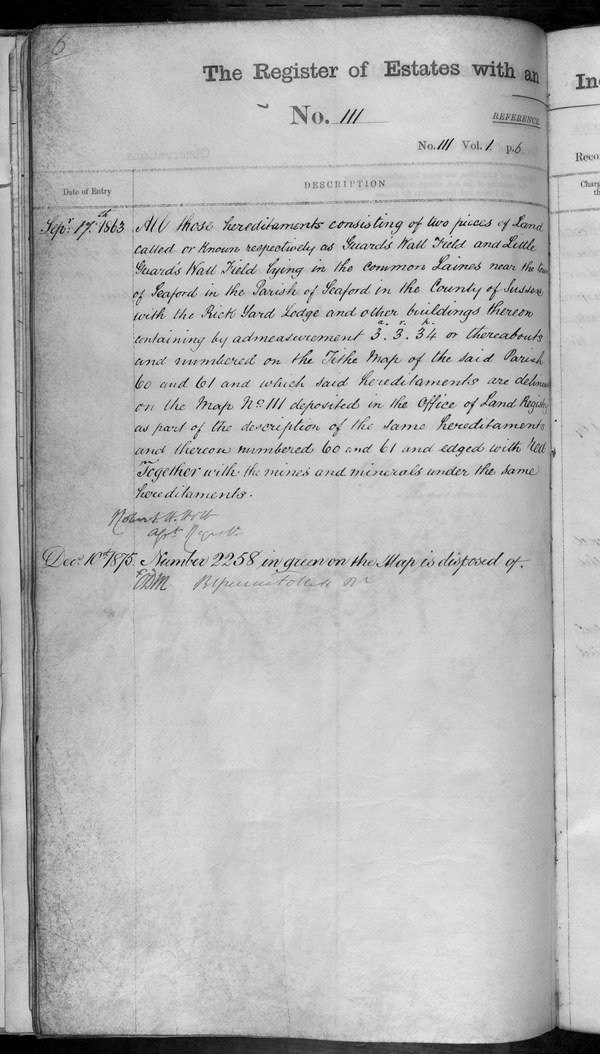 6
The Register of Estates with an
No. 111
REFERENCE.
No. 111 Vol. 1. p. 6.
Date of Entry
DESCRIPTION
Sepr. 17th 1863 All those hereditaments consisting of two pieces of Land
called or known respectively as Guard's Wall Field and Little
Guard's Wall Field lying in the common Laines near the
of Seaford in the Parish of Seaford in the County of Sussex
with the Rick Yard Lodge and other buildings thereon
containing by admeasurement 3a. 3r. 34p. or thereabouts
and numbered on the Tithe Map of the said Parish
60 and 61 and which said hereditaments are
on the Map No. 111 deposited in the Office of Land Registry
as part of the description of the same hereditaments
and thereon numbered 60 and 61 and edged with Red
Together with the mines and minerals under the same
hereditaments.
Robert H. Holt
Decr. 10th 1875. Number 2258 in green on the Map is disposed of.
In
Recor
Charg
th